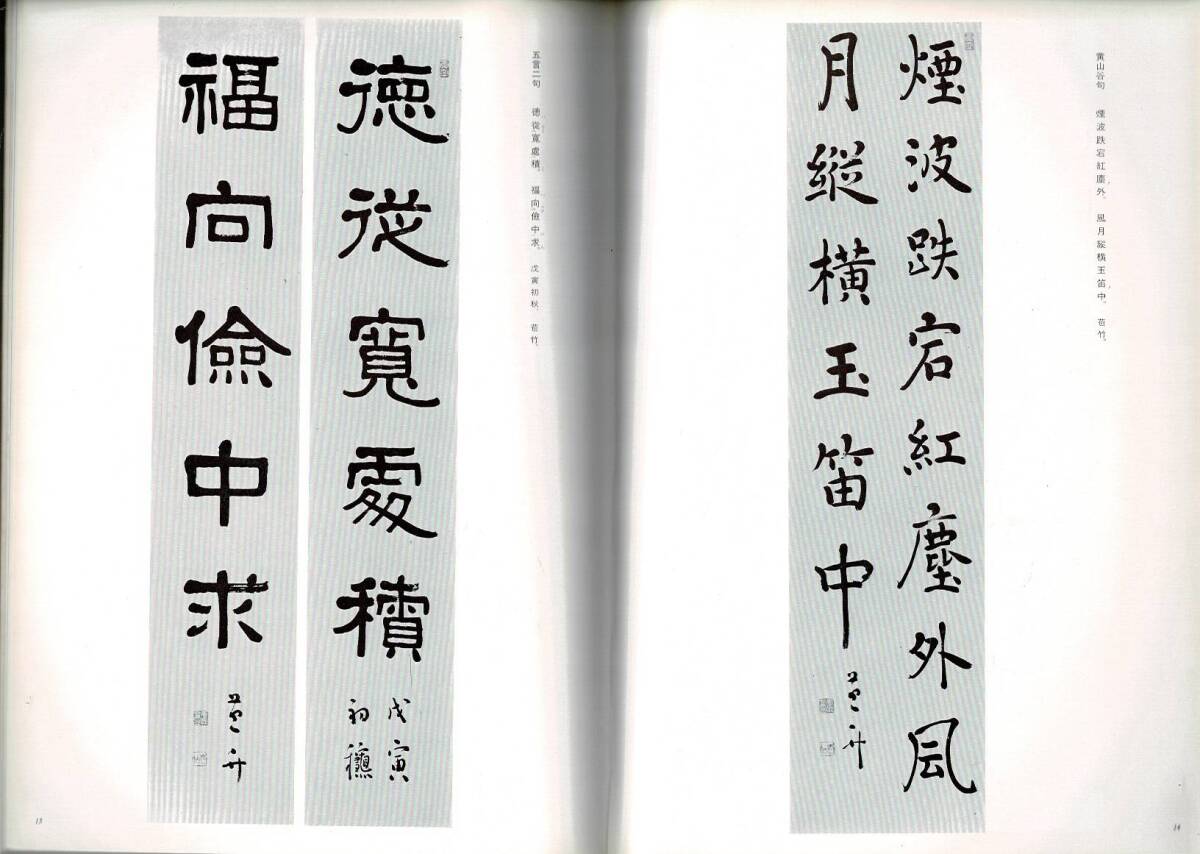 黄山谷句　煙波跌宕紅塵外、風月縱横玉笛中。　苞竹。
煙波跌宕紅塵外風
月縱橫玉笛中
苞竹
14
五言二句　徳從寛處積、福向儉中求。　戊寅初秋、苞竹。
徳從寛處積
戊寅
初龝
福向儉中求
苞竹